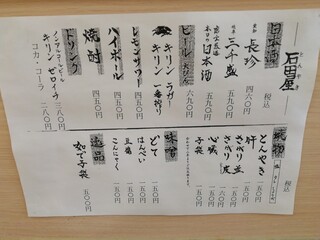 石田屋
日本酒 税込
長珍 四六〇円
三千盛 五九〇円
日本酒
ビール
キリンラガー 六七〇円
キリン一番搾り
レモンサワー 四五〇円
ハイボール 四五〇円
焼酎 四五〇円
ドリンク
ノンアルコールビール
キリンゼロイチ 三八〇円
コカ・コーラ 二八〇円
焼物 税込
とんやき 一五〇円
肝 一五〇円
さがり 並
さがり
心臓 一五〇円
子袋 一五〇円
味噌
どて 一五〇円
はんぺい 一五〇円
豆腐 一五〇円
こんにゃく 一五〇円
逸品
ゆで子袋 五〇〇円